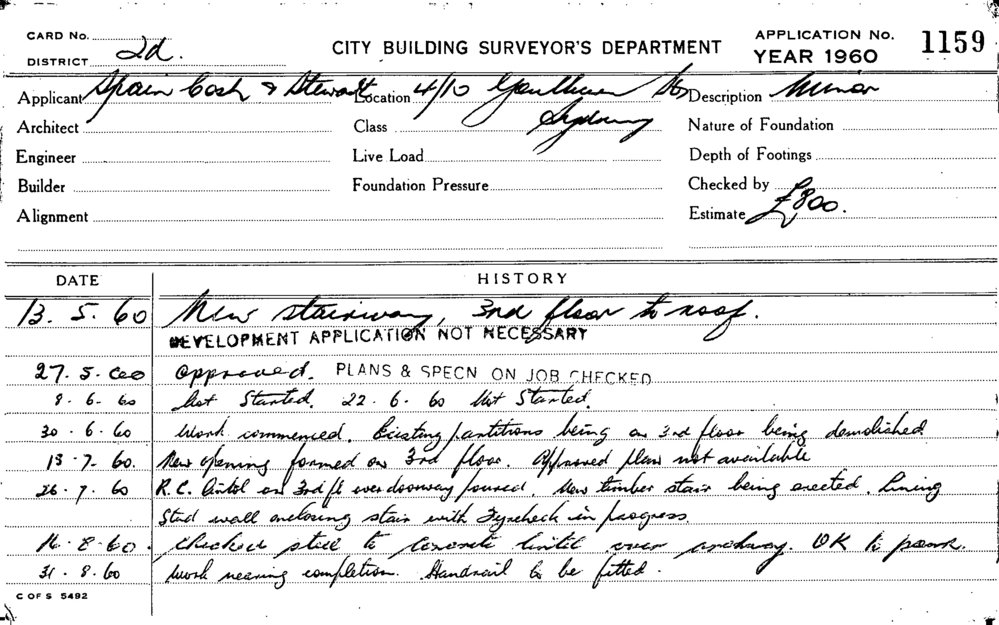 CARD No.
DISTRICT 2d.
CITY BUILDING SURVEYOR'S DEPARTMENT
APPLICATION No. 1159
YEAR 1960
Applicant Spain Cosh & Stewart
Location 4/10 St
Sydney
Description Minor
Architect
Class
Nature of Foundation
Engineer
Live Load
Depth of Footings
Builder
Foundation Pressure
Checked by
Alignment
Estimate £800.
DATE HISTORY
13. 5. 60 New stairway, 3rd floor to roof.
DEVELOPMENT APPLICATION NOT NECESSARY
27. 5. 60 Approved. PLANS & SPECN ON JOB CHECKED
8. 6. 60 Not Started. 22. 6. 60 Not Started.
30. 6. 60 Work commenced. Existing partitions being on 3rd floor being demolished
13. 7. 60. New opening formed on 3rd floor. Approved plan not available
26. 7. 60 R.C. lintol on 3rd fl over doorway poured. New timber stair being erected. Lining
Stud wall enclosing stair with Gyrocheck in progress.
16. 8. 60. Checked steel to concrete lintel over archway. OK to pour.
31. 8. 60 Work nearing completion. Handrail to be fitted.
C OF S 5492